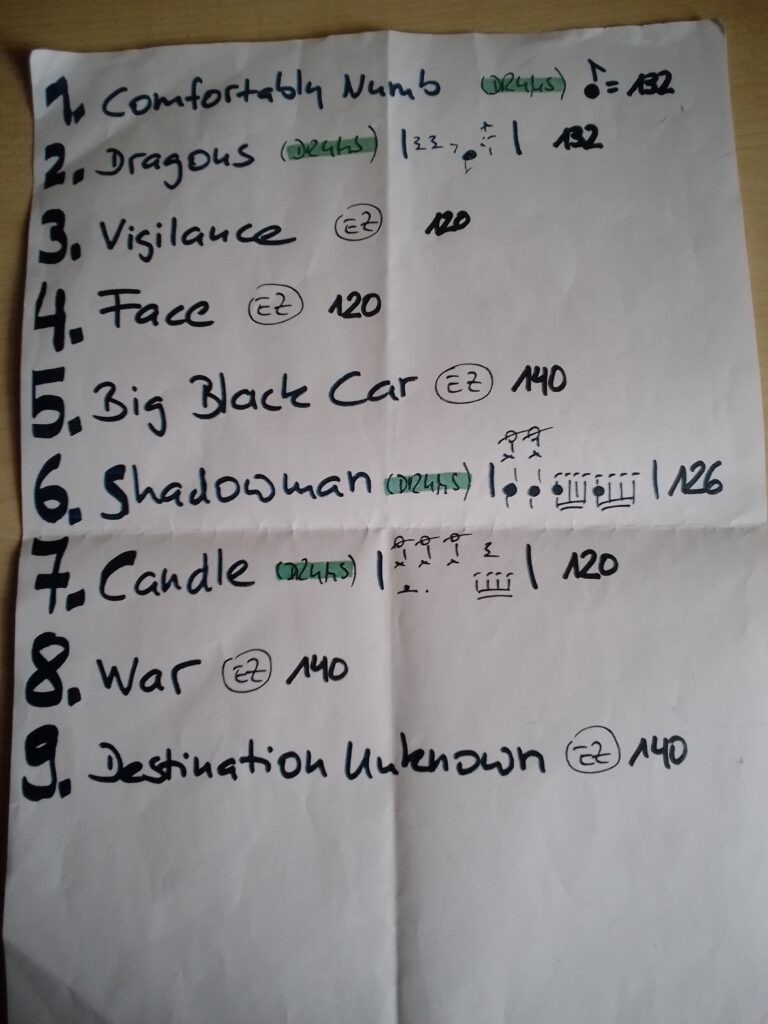 1. Comfortably Numb (DRUMS) ♪= 132
2. Dragons (DRUMS) | | 132
3. Vigilance EZ 120
4. Face EZ 120
5. Big Black Car EZ 140
6. Shadowman (DRUMS) | | 126
7. Candle (DRUMS) | | 120
8. War EZ 140
9. Destination Unknown EZ 140